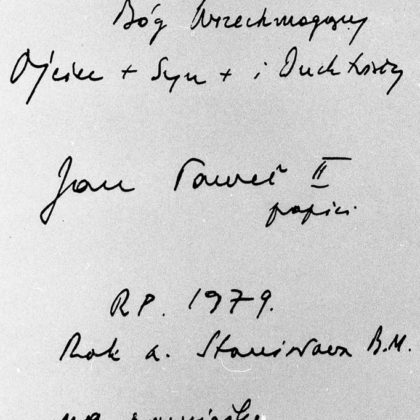 Bóg Wszechmogący
Ojciec + Syn + i Duch Święty
Jan Paweł II
papież
RP. 1979.
Rok Stanisława B.M.
na pamiątkę